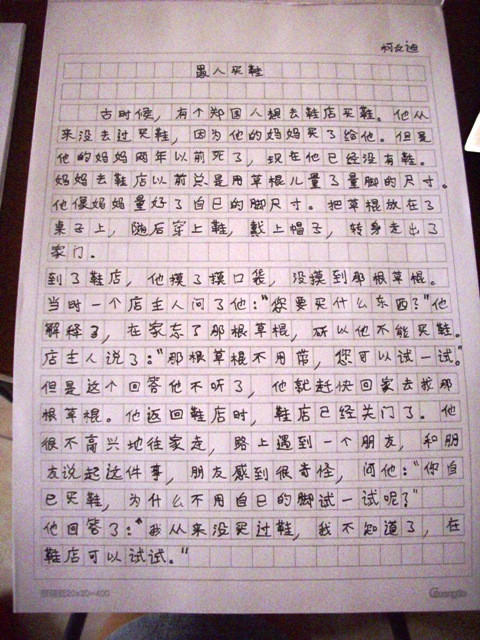 愚人买鞋
古时候，有个郑国人想去鞋店买鞋。他从
来没去过买鞋，因为他的妈妈买了给他。但是
他的妈妈两年以前死了，现在他已经没有鞋。
妈妈去鞋店以前总是用草棍儿量了量脚的尺寸。
他像妈妈量好了自己的脚尺寸。把草棍放在了
桌子上，随后穿上鞋，戴上帽子，转身走出了
家门。
到了鞋店，他摸了摸口袋，没摸到那根草棍。
当时一个店主人问了他：“您要买什么东西？”他
解释了，在家忘了那根草棍，所以他不能买鞋。
店主人说了：“那根草棍不用带，您可以试一试。”
但是这个回答他不听了，他就赶快回家去找那
根草棍。他返回鞋店时，鞋店已经关门了。他
很不高兴地往家走，路上遇到一个朋友，和朋
友说起这件事，朋友感到很奇怪，问他：“你自
已买鞋，为什么不用自已的脚试一试呢？”
他回答了：“我从来没买过鞋，我不知道了，在
鞋店可以试试。”
20x20=400
Guangbo